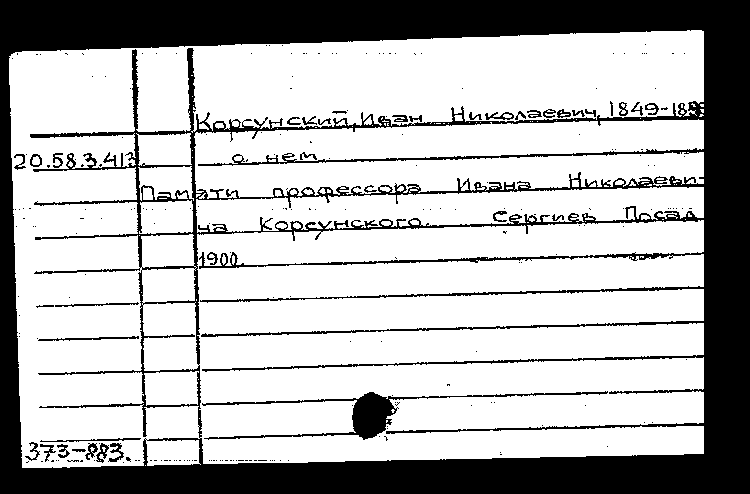 Корсунский, Иван Николаевич, 1849-1899
20.58.3.413. о нем
Памяти профессора Ивана Николаеви-
ча Корсунского. Сергиев Посад
1900.
373-883.